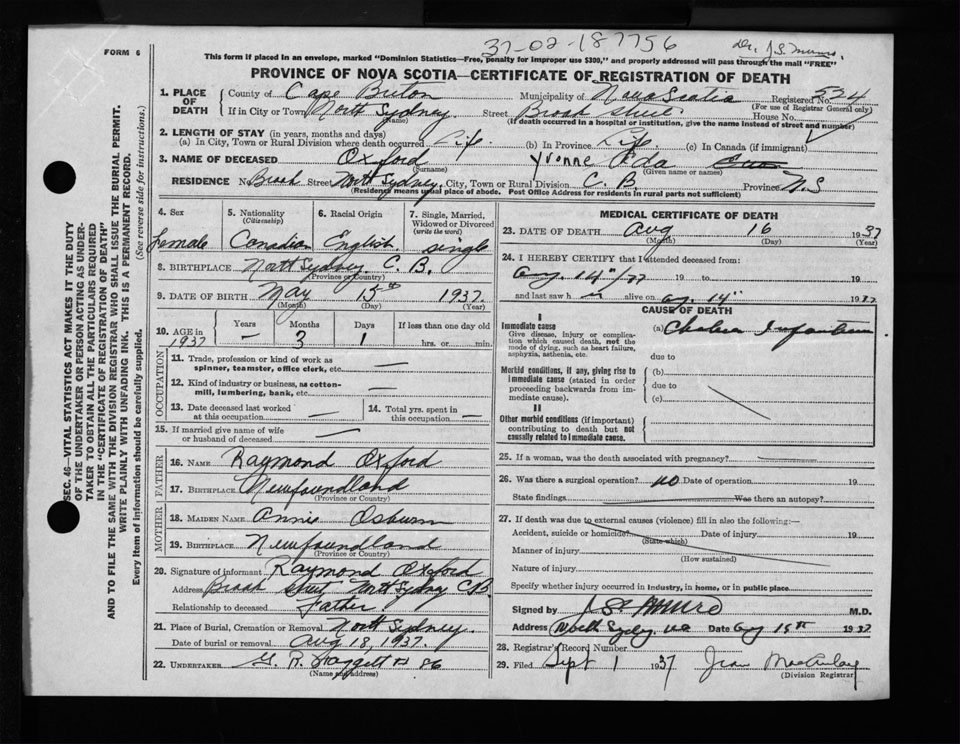 FORM 6
37-02-187756
Dr. J.S. Munro
This form if placed in an envelope, marked "Dominion Statistics—Free, penalty for improper use $300," and properly addressed will pass through the mail "FREE"
PROVINCE OF NOVA SCOTIA—CERTIFICATE OF REGISTRATION OF DEATH
1. PLACE OF DEATH County of Cape Breton Municipality of Nova Scotia Registered No. 524
(For use of Registrar General only)
If in City or Town North Sydney Street Brook Street House No.
(Name) (If death occurred in a hospital or institution, give the name instead of street and number)
2. LENGTH OF STAY (in years, months and days)
(a) In City, Town or Rural Division where death occurred Life (b) In Province Life (c) In Canada (if immigrant)
3. NAME OF DECEASED Oxford Yvonne Ada
(Surname) (Given name or names)
RESIDENCE No. Brook Street North Sydney City, Town or Rural Division C. B. Province N.S
(Residence means usual place of abode. Post Office Address for residents in rural parts not sufficient)
4. Sex 5. Nationality (Citizenship) 6. Racial Origin 7. Single, Married, Widowed or Divorced (write the word)
Female Canadian English single
8. BIRTHPLACE North Sydney C. B.
(Province or Country)
9. DATE OF BIRTH May 15th 1937.
(Month) (Day) (Year)
10. AGE in 1937 Years Months Days If less than one day old
— 3 1 hrs. or min.
OCCUPATION
11. Trade, profession or kind of work as spinner, teamster, office clerk, etc. —
12. Kind of industry or business, as cotton-mill, lumbering, bank, etc. —
13. Date deceased last worked at this occupation — 14. Total yrs. spent in this occupation —
15. If married give name of wife or husband of deceased —
FATHER
16. NAME Raymond Oxford
17. BIRTHPLACE Newfoundland
(Province or Country)
MOTHER
18. MAIDEN NAME Annie Osburn
19. BIRTHPLACE Newfoundland
(Province or Country)
20. Signature of informant Raymond Oxford
Address Brook Street North Sydney C.B.
Relationship to deceased Father
21. Place of Burial, Cremation or Removal North Sydney.
Date of burial or removal Aug 18, 1937.
22. UNDERTAKER G. R. Haggett 86
(Name and address)
MEDICAL CERTIFICATE OF DEATH
23. DATE OF DEATH Aug 16 1937
(Month) (Day) (Year)
24. I HEREBY CERTIFY that I attended deceased from:
Aug. 14"/37 19 to 19
and last saw h alive on Aug. 14" 1937
CAUSE OF DEATH
I
Immediate cause (a) Cholera Infantum
Give disease, injury or complication which caused death, not the mode of dying, such as heart failure, asphyxia, asthenia, etc.
due to
Morbid conditions, if any, giving rise to immediate cause (stated in order proceeding backwards from immediate cause).
(b)
due to
(c)
II
Other morbid conditions (if important) contributing to death but not causally related to immediate cause.
25. If a woman, was the death associated with pregnancy?
26. Was there a surgical operation? no Date of operation 19
State findings Was there an autopsy?
27. If death was due to external causes (violence) fill in also the following:—
Accident, suicide or homicide? Date of injury 19
(State which)
Manner of injury
(How sustained)
Nature of injury
Specify whether injury occurred in industry, in home, or in public place
Signed by J.S. Munro M.D.
Address North Sydney Date Aug 19th 1937
28. Registrar's Record Number
29. Filed Sept 1 1937 Jean MacAulay
(Division Registrar)
SEC. 46—VITAL STATISTICS ACT MAKES IT THE DUTY
OF THE UNDERTAKER OR PERSON ACTING AS UNDER-
TAKER TO OBTAIN ALL THE PARTICULARS REQUIRED
IN THE "CERTIFICATE OF REGISTRATION OF DEATH"
AND TO FILE THE SAME WITH THE DIVISION REGISTRAR WHO SHALL ISSUE THE BURIAL PERMIT.
WRITE PLAINLY WITH UNFADING INK. THIS IS A PERMANENT RECORD.
Every item of information should be carefully supplied. (See reverse side for instructions.)